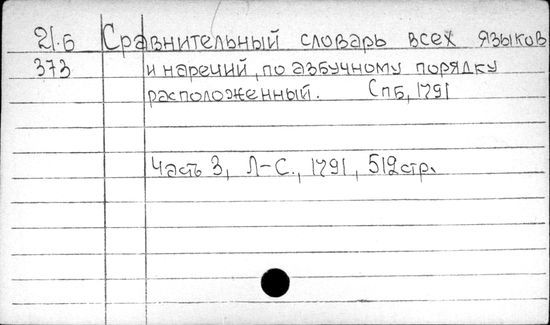 21.Б Сравнительный словарь всех языков
373 и наречий, по азбучному порядку
расположенный. СпБ, 1791
Часть 3, Л-С., 1791, 512стр.